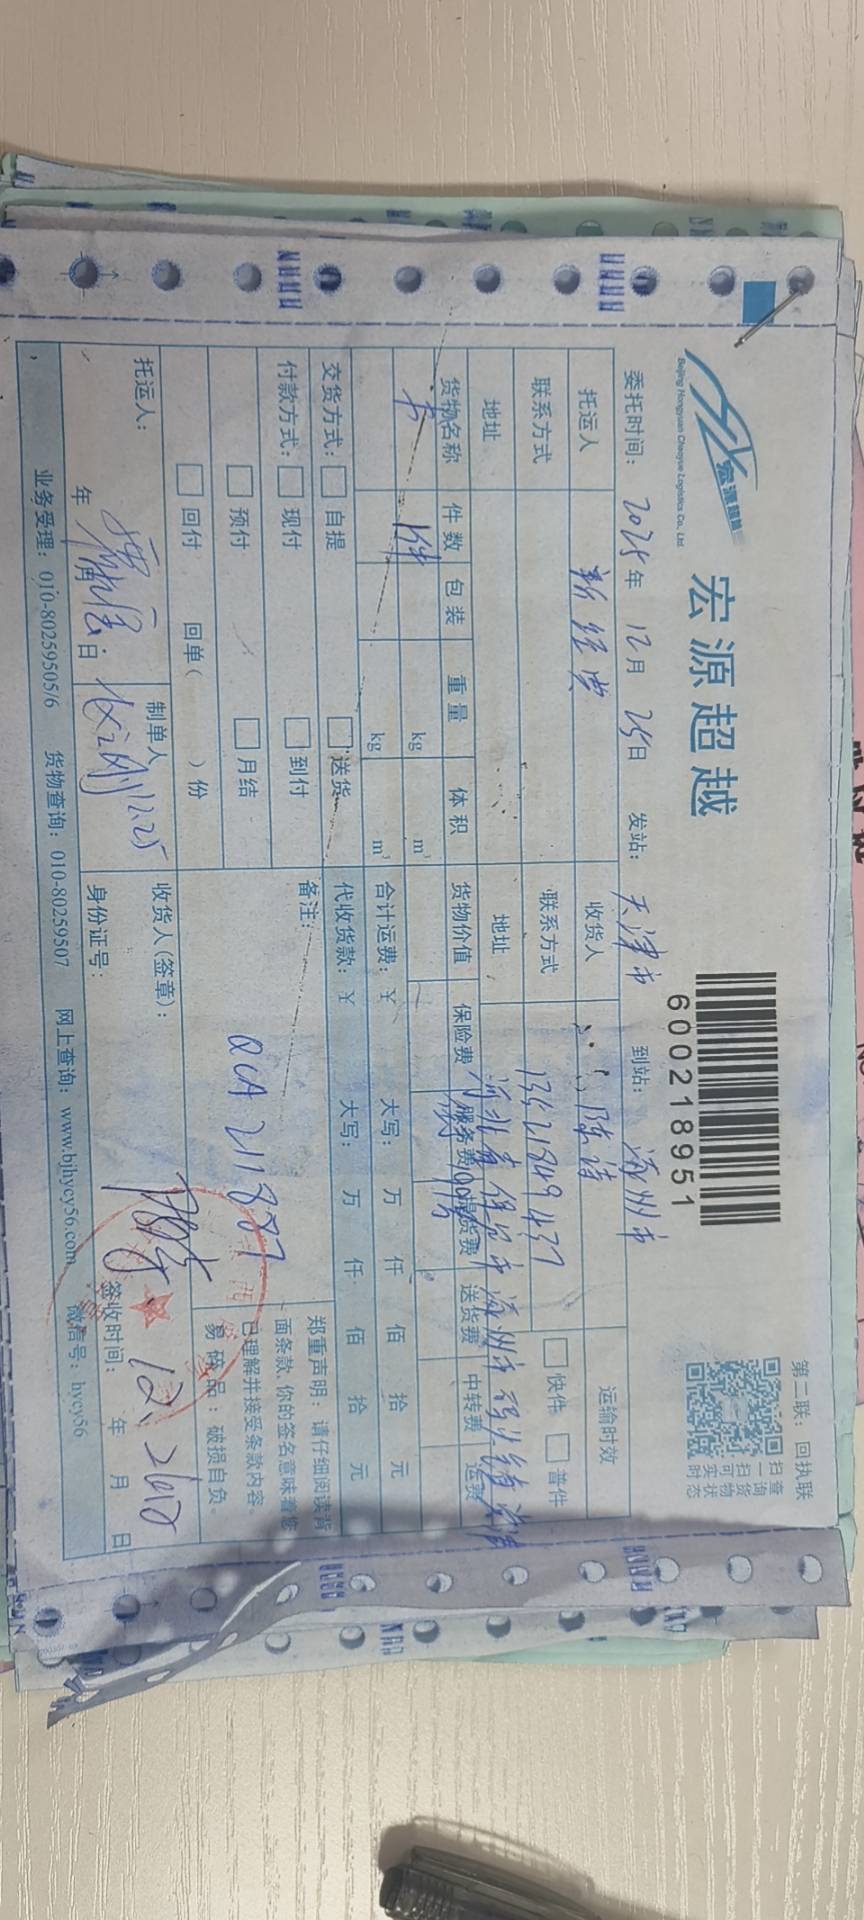 第二联：回执联
宏源超越
Beijing Hongyuan Chaoyue Logistics Co., Ltd.
宏源超越
600218951
扫一扫可实时
查询货物状态
委托时间：2025年12月25日 发站：天津市 到站：涿州市
托运人 新经典 收货人 陈洁 运输时效
联系方式 联系方式 13521849437 快件 普件
地址 地址 河北省保定市涿州市码头镇
货物名称 件数 包装 重量 体积 货物价值 保险费 服务费 提货费 送货费 中转费 运费
书 1件 kg m³
kg m³ 合计运费：¥ 大写： 万 仟 佰 拾 元
交货方式： 自提 送货 代收货款：¥ 大写： 万 仟 佰 拾 元
付款方式： 现付 到付 备注：
预付 月结 QCA 211887
回付 回单( )份
郑重声明：请仔细阅读背
面条款,你的签名意味着您
已理解并接受条款内容。
易碎品：破损自负。
托运人： 制单人 12.25 收货人(签章)：
年 月 日 身份证号： 签收时间： 年 月 日
12.26
业务受理：010-80259505/6 货物查询：010-80259507 网上查询：www.bjhycy56.com 微信号：hycy56